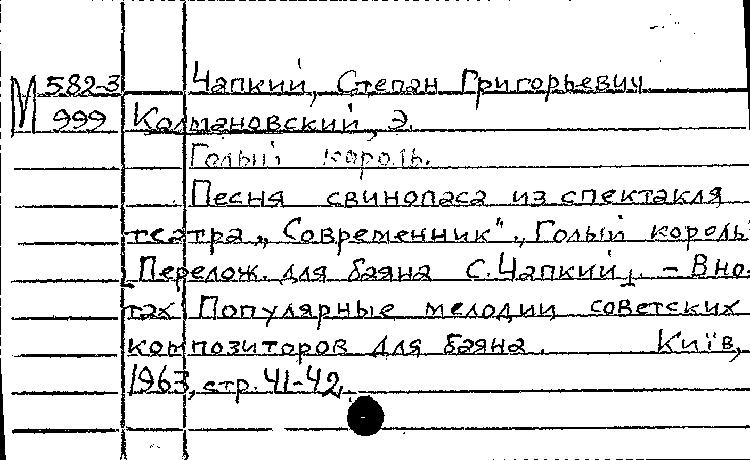 М 582-3 Чапкий, Степан Григорьевич
999 Колмановский, Э.
Голый король.
Песня свинопаса из спектакля
театра „Современник". „Голый король"
[Перелож. для баяна С. Чапкий]. – В но-
тах Популярные мелодии советских
композиторов для баяна. Київ,
1963, стр. 41-42.